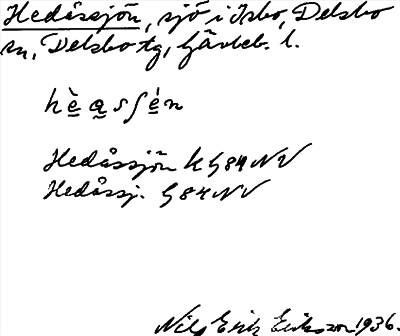 Hedåssjön, sjö i Isbo, Delsbo
sn, Delsbo tg, Gävleb. l.
hè̱a̰sʃé̱n
Hedåssjön k G84NV
Hedåssj. G84NV
Nils Erik Eriksson 1936.